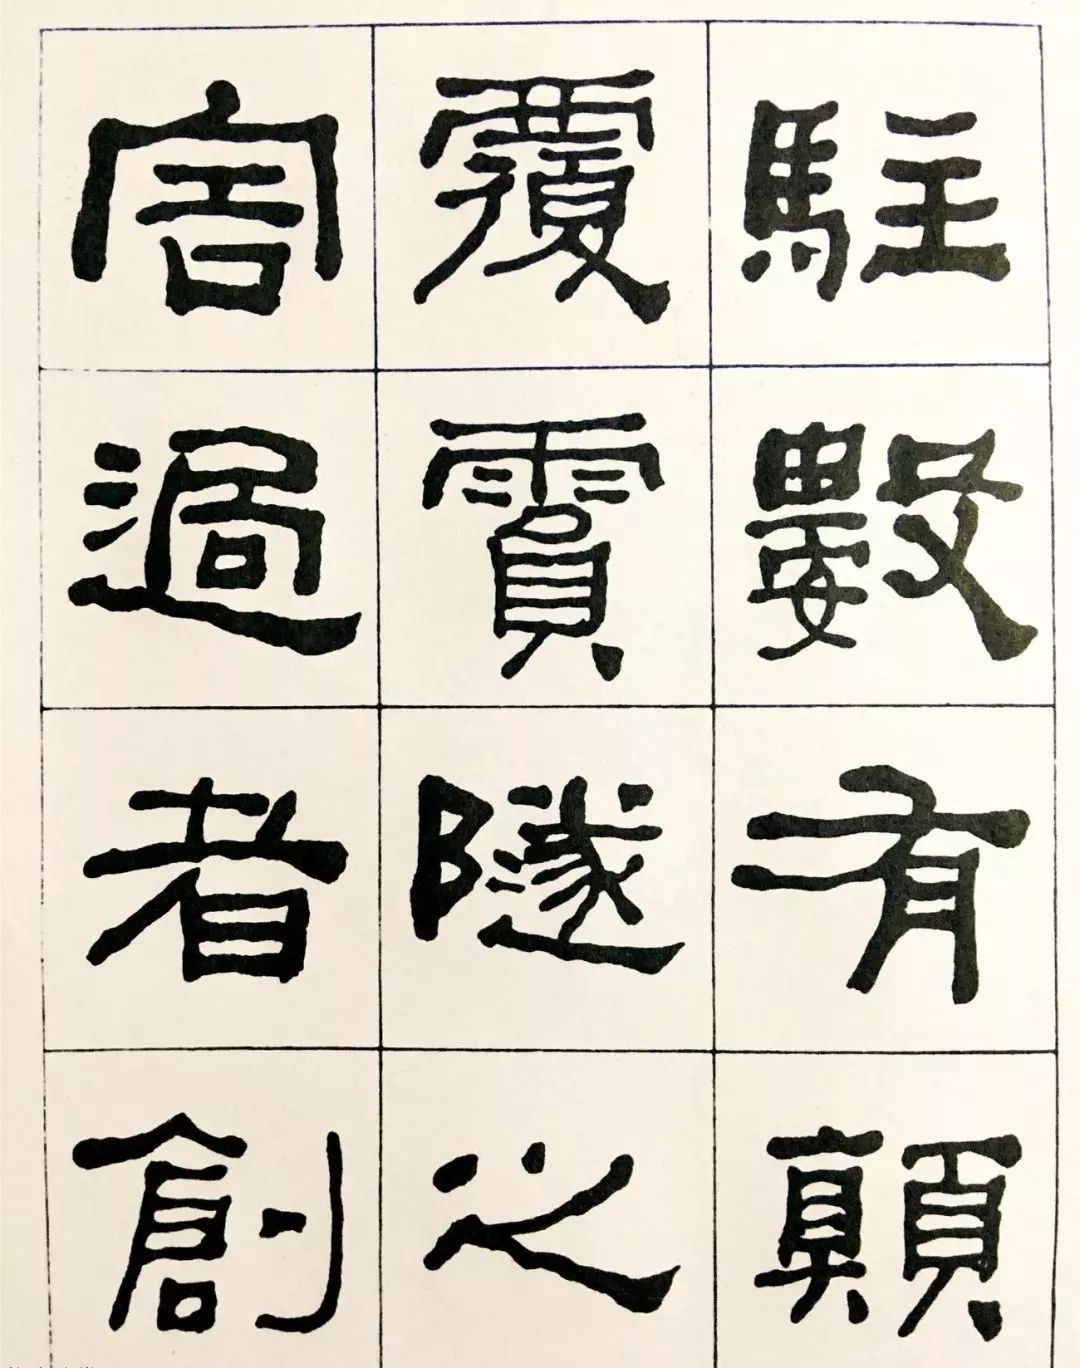 駐數有顛
覆霣隧之
害過者創